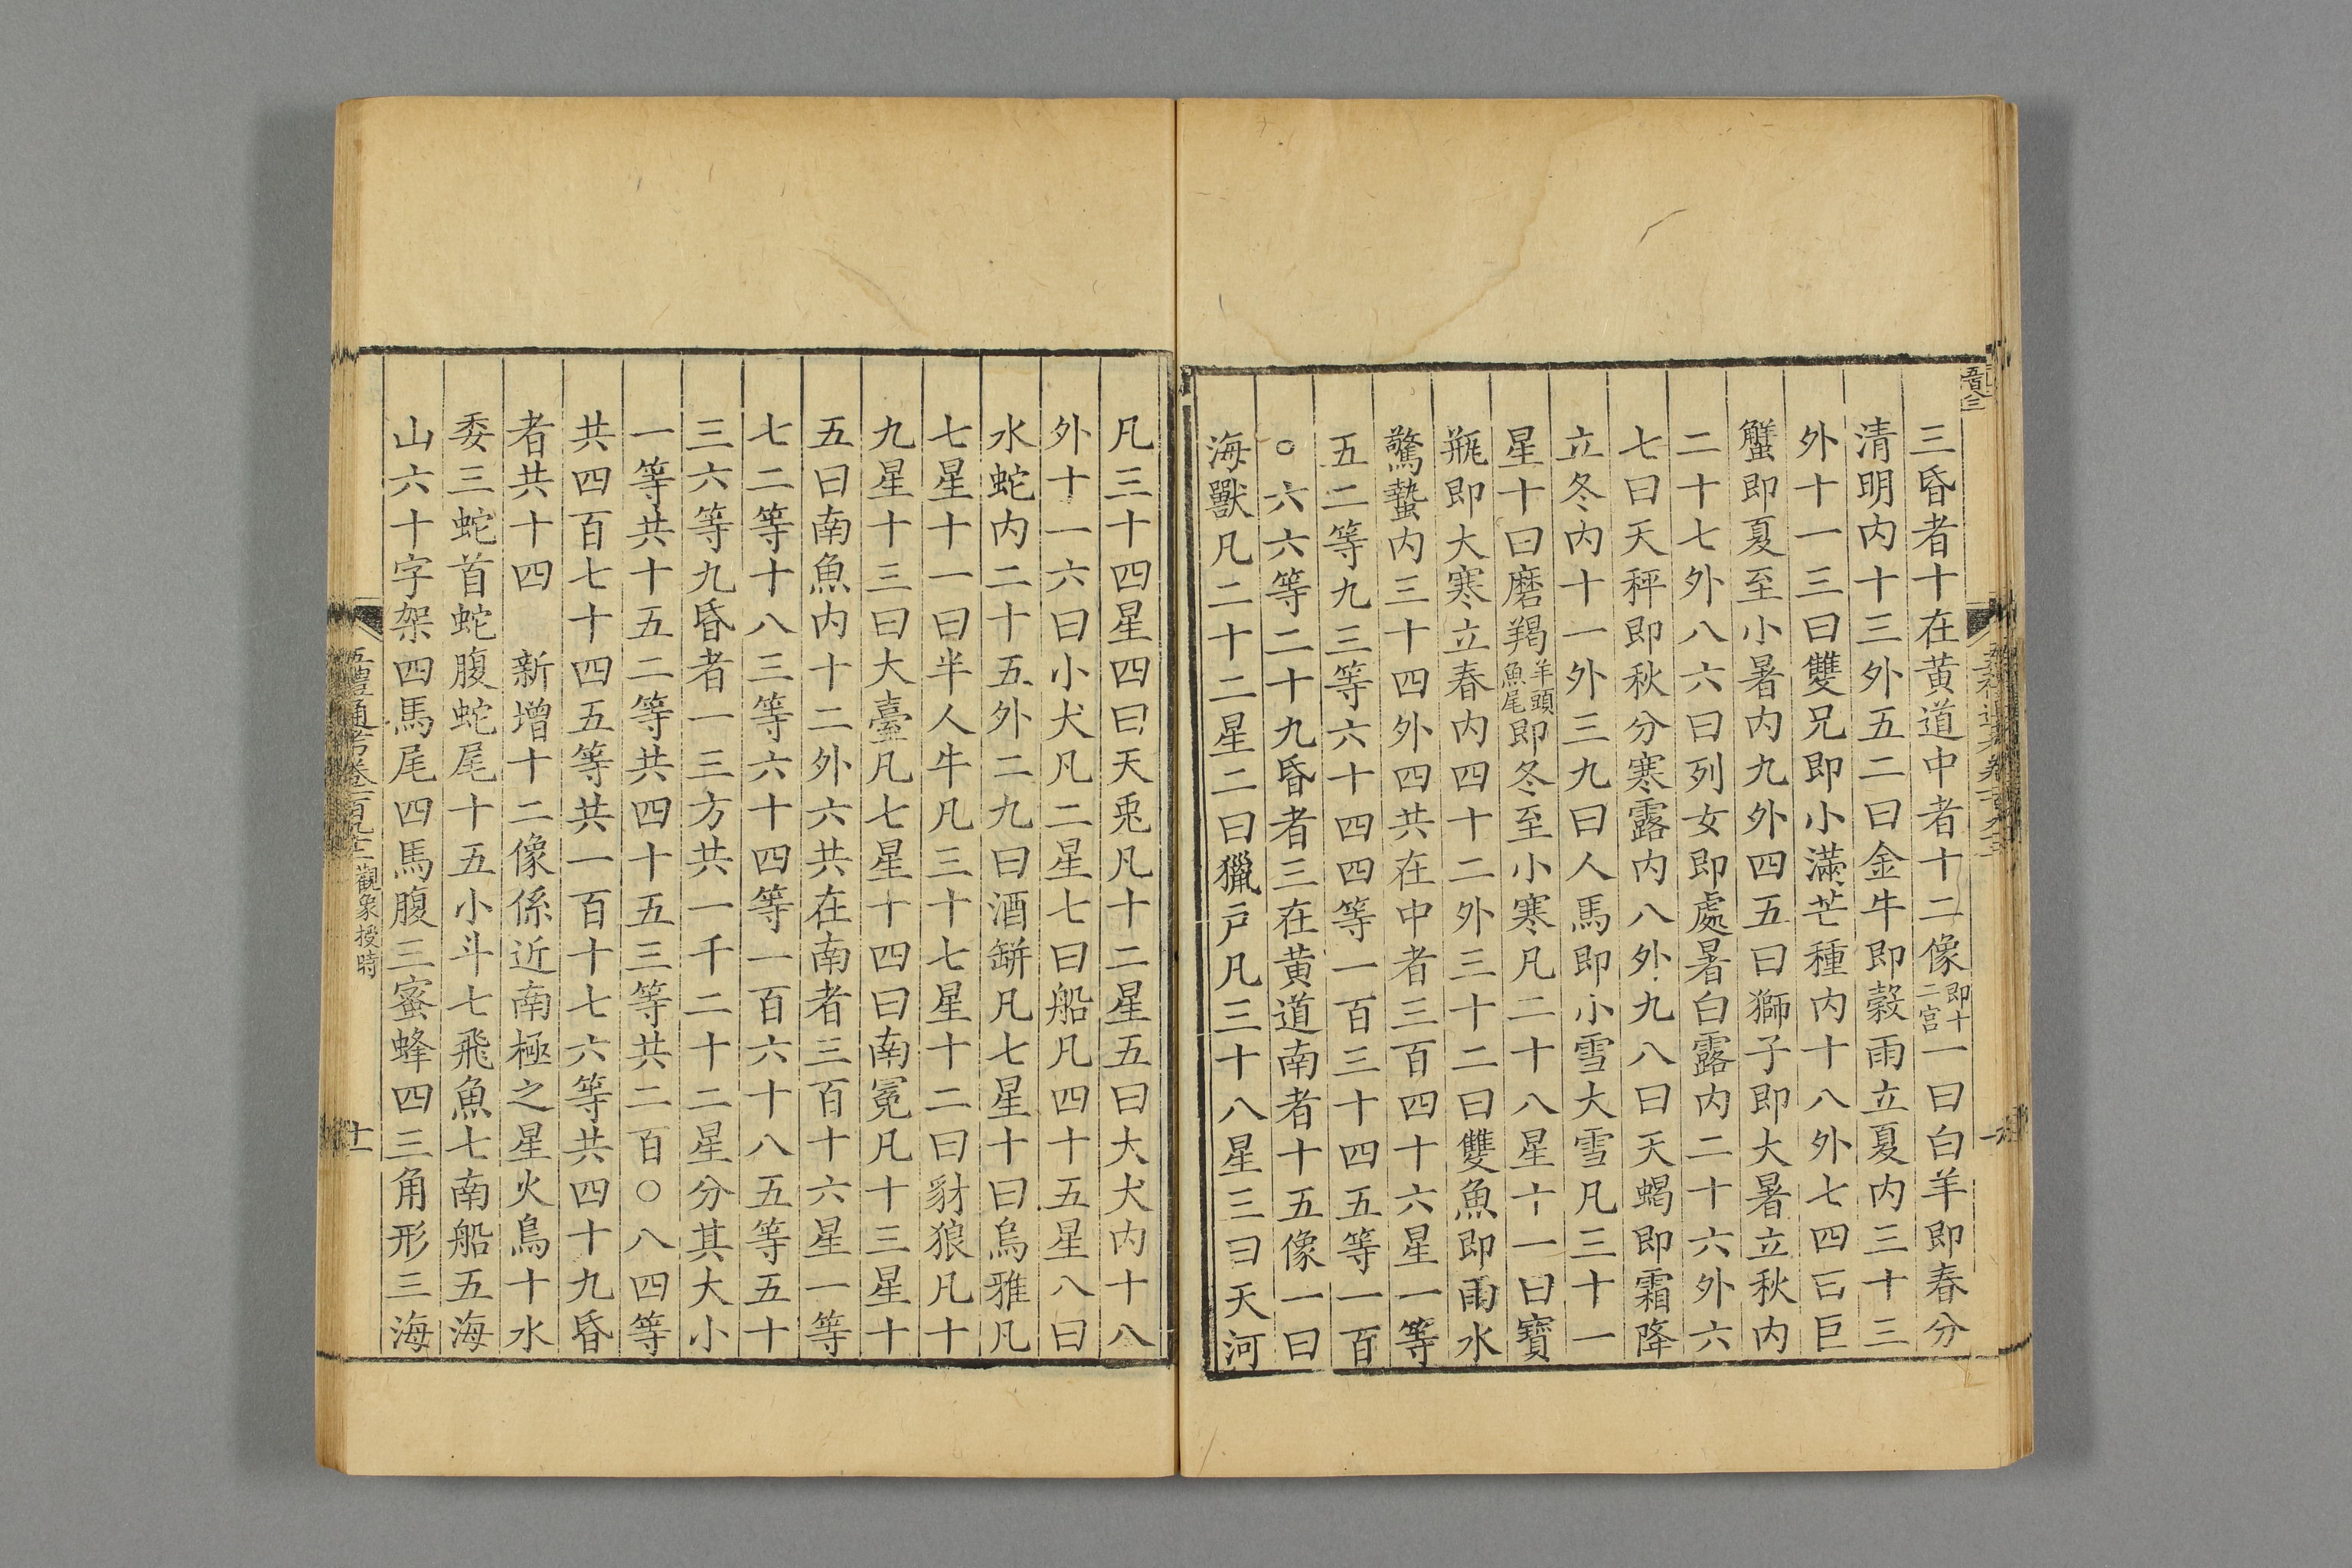 三昏者十在黄道中者十二像即十二宮一曰白羊即春分
清明内十三外五二曰金牛即榖雨立夏内三十三
外十一三曰雙兄即小滿芒種内十八外七四曰巨
蟹即夏至小暑内九外四五曰獅子即大暑立秋内
二十七外八六曰列女即處暑白露内二十六外六
七曰天秤即秋分寒露内八外九八曰天蝎即霜降
立冬内十一外三九曰人馬即小雪大雪凡三十一
星十曰磨羯羊頭魚尾即冬至小寒凡二十八星十一曰寶
瓶即大寒立春内四十二外三十二曰雙魚即雨水
驚蟄内三十四外四共在中者三百四十六星一等
五二等九三等六十四四等一百三十四五等一百
○六六等二十九昏者三在黄道南者十五像一曰
海獸凡二十二星二曰獵戸凡三十八星三曰天河
凡三十四星四曰天兎凡十二星五曰大犬内十八
外十一六曰小犬凡二星七曰船凡四十五星八曰
水蛇内二十五外二九曰酒缾凡七星十曰烏雅凡
七星十一曰半人牛凡三十七星十二曰豺狼凡十
九星十三曰大臺凡七星十四曰南冕凡十三星十
五曰南魚内十二外六共在南者三百十六星一等
七二等十八三等六十四等一百六十八五等五十
三六等九昏者一三方共一千二十二星分其大小
一等共十五二等共四十五三等共二百○八四等
共四百七十四五等共一百十七六等共四十九昏
者共十四　新增十二像係近南極之星火鳥十水
委三蛇首蛇腹蛇尾十五小斗七飛魚七南船五海
山六十字架四馬尾四馬腹三蜜蜂四三角形三海
五禮通考卷一百九十二觀象授時
十一